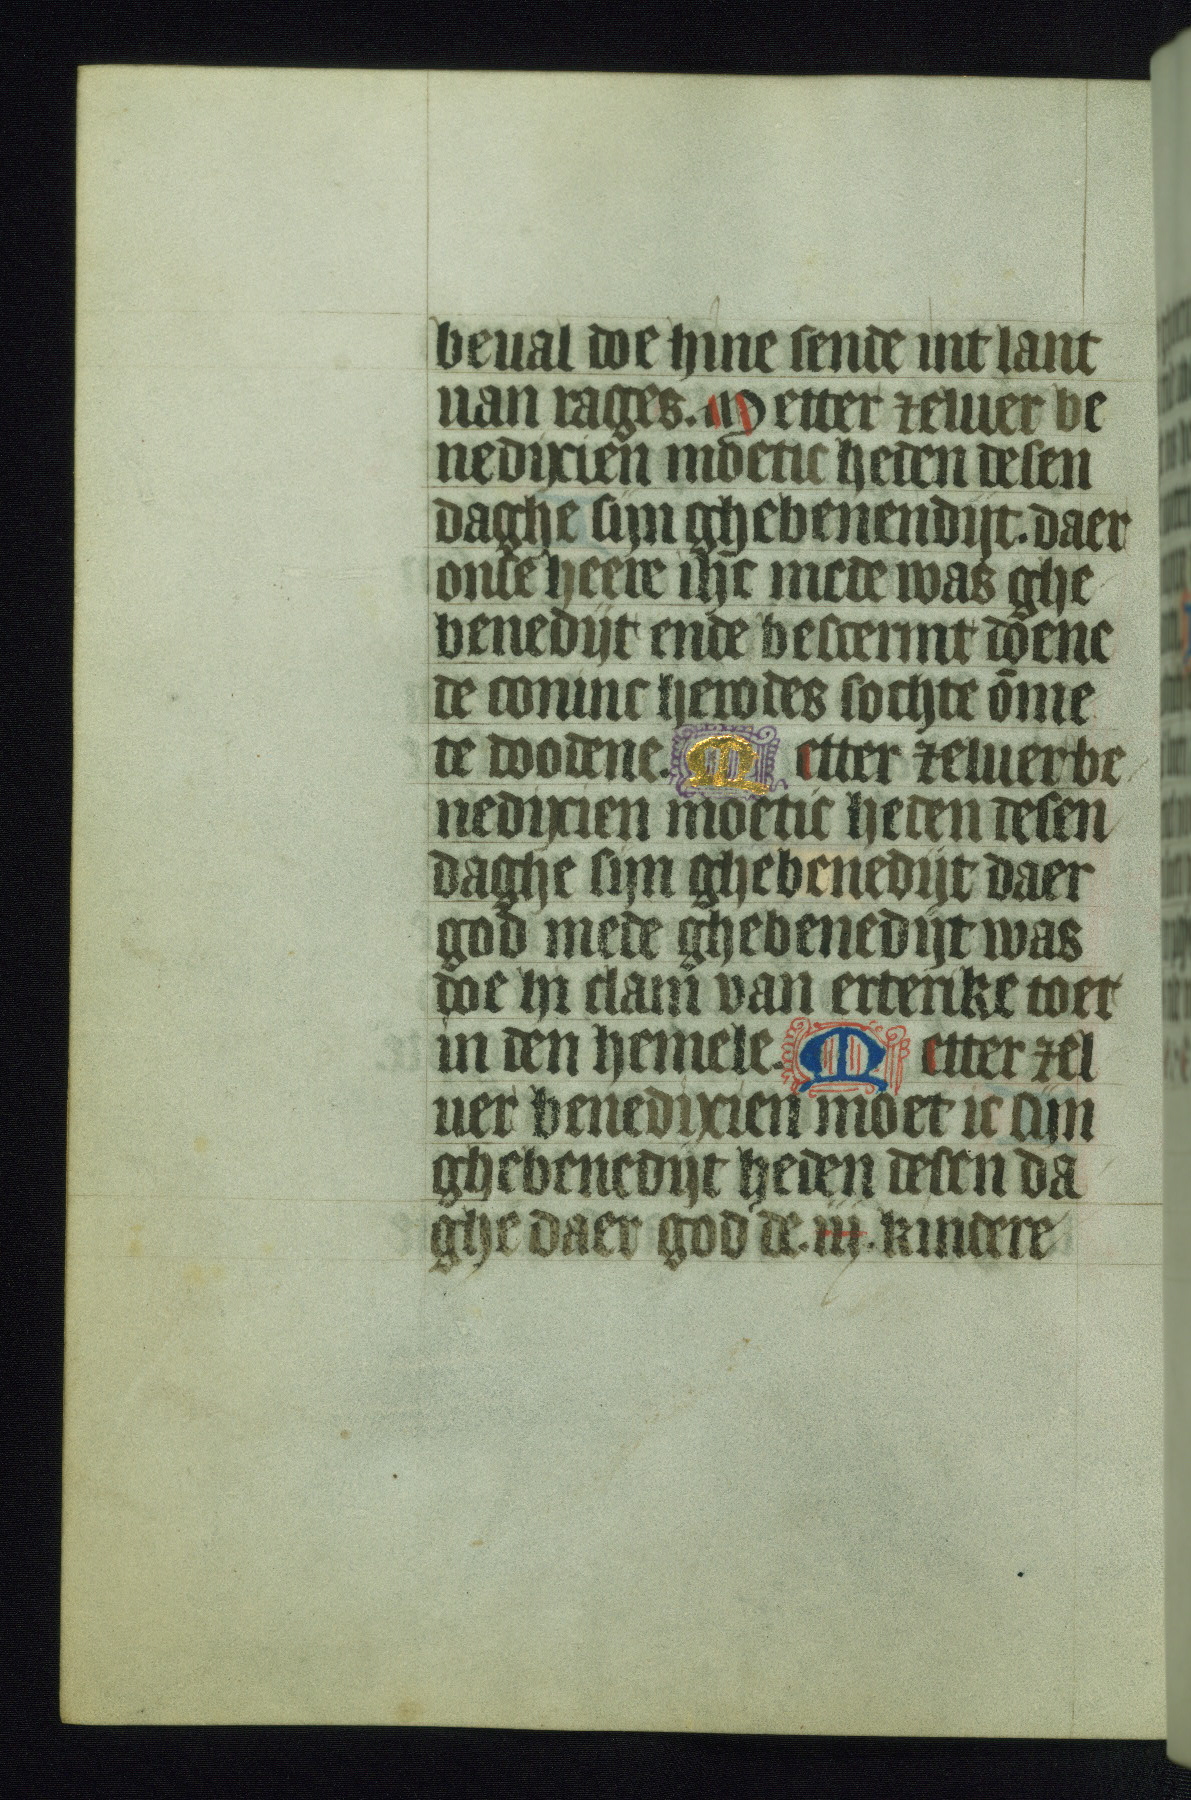 beual doe hine sende int lant
uan rages. Metter zeluer be
nedixien moetic heden desen
daghe sijn ghebenendijt. daer
onse heere ih̄c mede was ghe
benedijt ende bescermt doene
de coninc herodes sochte ōme
te doodene. Metter zeluer be
nedixien moetic heden desen
daghe sijn ghebenedijt daer
god mede ghebenedijt was
doe hi clam van erterike toet
in den hemele. Metter zel
uer benedixien moet ic sijn
ghebenedijt heden desen da
ghe daer god de .iij. kindere